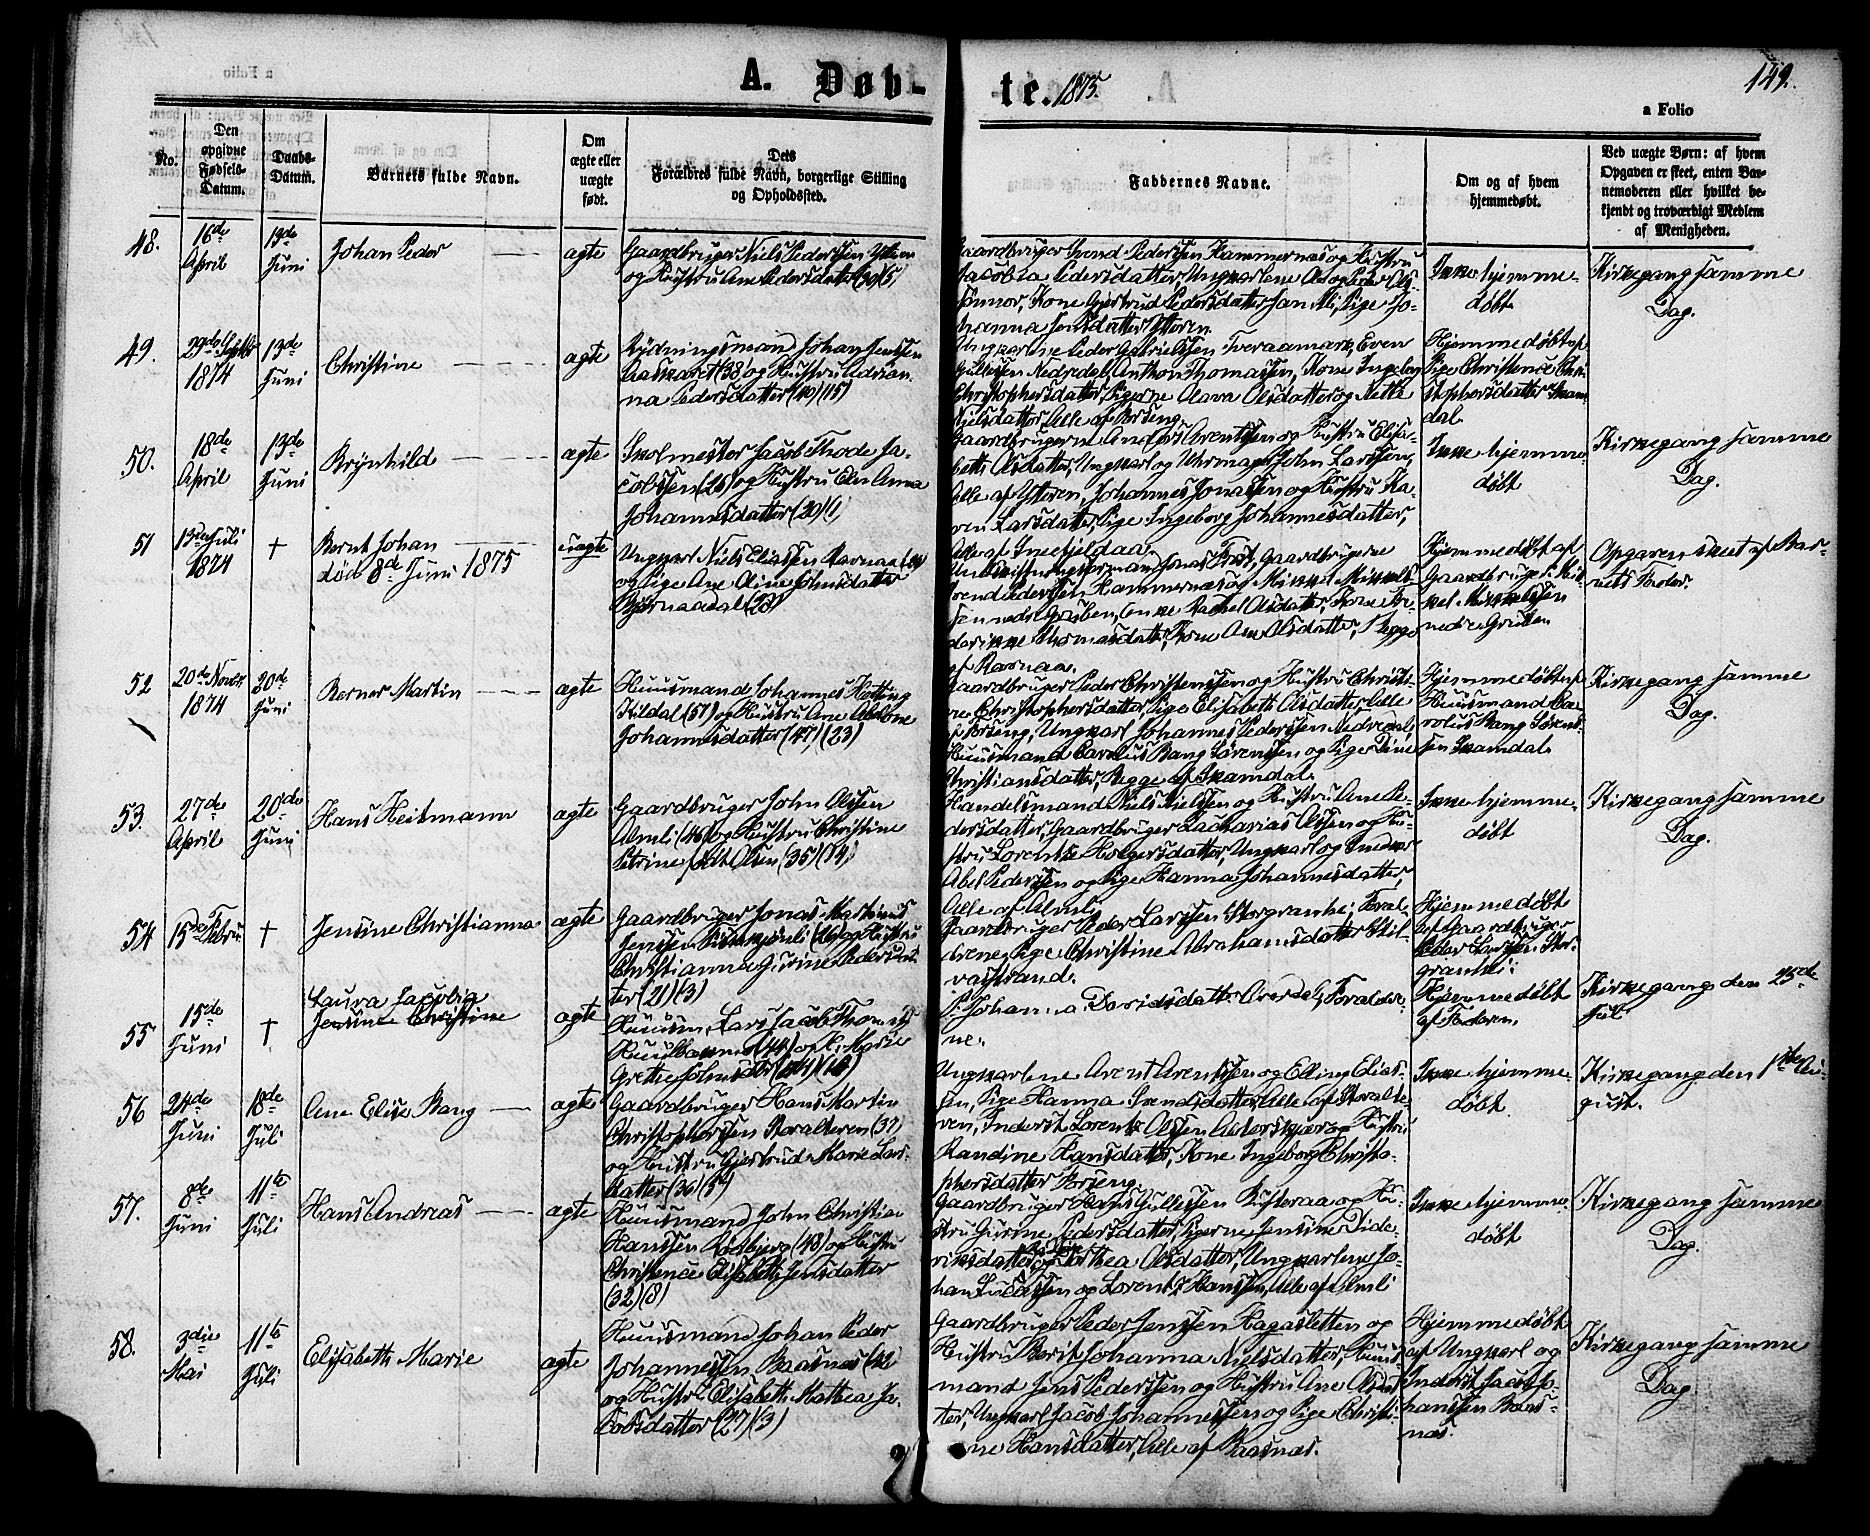 A. Døb-
te. 1875.
149.
a Folio
No.
Den
opgivne
Fødsels-
Datum.
Daabs-
Datum.
Barnets fulde Navn.
Om
ægte eller
uægte
født.
Dets
Forældres fulde Navn, borgerlige Stilling
og Opholdssted.
Faddernes Navne.
Om og af hvem
hjemmedøbt.
Ved uægte Børn: af hvem
Opgaven er skeet, enten Bar-
nemoderen eller hvilket be-
kjendt og troværdigt Medlem
af Menigheden.
48.
16de
April
13de
Juni
Johan Peder
ægte
Gaardbruger Niels Pederssen Ytteren
og Hustru Ane Pedersdatter
Gaardbruger Svend Pederssen Hammernæs og Hustru
Jacobia Pedersdatter, Ungkarlene
Kone Gjertrud Pedersdatter
hanna Jensdatter Ytteren
Ikke hjemme-
døbt
Kirkegang samme
Dag.
49.
29de Septbr
1874
13de
Juni
Christine
ægte
Rydningsmand Johan Jenssen
(38) og Hustru Adrian-
na Pedersdatter (40) (15)
Ungkarlene Peder Gabrielssen Tveraamark, Even
Gullessen Nedredal, Anthon Thomassen, Kone Ingeborg
Christophersdatter, Pigerne Olava Olsdatter og Nella
Nielsdatter Alle af Forseng.
Hjemmedøbt af
Pige Christence Chri-
stophersdatter Skam-
dal
50.
18de
April
13de
Juni
Brynhild
ægte
Skolmester Jacob Thode Ja-
cobssen (26) og Hustru Elen Anna
Johannesdatter (20) (1)
Gaardbrugerne Anders Arentssen og Hustru Elisa-
beth Olsdatter, Ungkarl og Uhrmager John Larssen,
Alle af Ytteren, Johannes Jonassen og Hustru Ka-
ren Larsdatter, Pige Ingeborg Johannesdatter,
Alle af
Ikke hjemme-
døbt
Kirkegang samme
Dag.
51
13de Juli
1874
†
Bernt Johan
død 8de Juni 1875
uægte
Ungkarl Niels Eliassen Ravnaa
og Pige Ane Oline Johnsdatter
Bjørnaadal (23)
Jonas Frost, Gaardbrugerne
Svend Pederssen Hammernæs og Mikkel Mikkels-
sen nedre Gruben, Enke Rachel Olsdatter, Kone Fre-
derikke Thomasdatter, Kone Ane Olsdatter, Begge
af Ravnaa.
Hjemmedøbt af
Gaardbruger Mik-
kel Mikkelssen
nedre Gruben
Opgaven skeet af Bar-
nets Fader.
52
20de Novbr
1874
20de
Juni
Berner Martin
ægte
Huusmand Johannes Hotting
Kildal (57) og Hustru Ane Abelone
Johannesdatter (47) (23)
Gaardbruger Peder Christenssen og Hustru Christi-
ne Christophersdatter, Pige Elisabeth Olsdatter, Alle
af Forseng, Ungkarl Johannes Pederssen Nedredal,
Huusmand Carolus Bang Sørenssen og Pige Dine
Christiansdatter, Begge af Skamdal.
Hjemmedøbt af
Huusmand Ca-
rolus Bang Sørens-
sen Skamdal.
Kirkegang samme
Dag.
53.
27de
April
20de
Juni
Hans Heitmann
ægte
Gaardbruger John Olssen
Almli (46) og Hustru Christine
Petrine født Olsen (35) (14)
Handelsmand Niels Nielssen og Hustru Ane Pe-
dersdatter, Gaardbruger Zacharias Olssen og Hu-
stru Lorentze Holgersdatter, Ungkarl og Snedker
Abel Pederssen og Pige Hanna Johannesdatter,
Alle af Almli.
Ikke hjemme-
døbt
Kirkegang samme
Dag.
54
15de Febru
†
Jensine Christianna
ægte
Gaardbruger Jonas Martinus
Jenssen og Hustru
Christianna Gurine Pedersdat-
ter (21) (3)
Gaardbruger Peder Larssen Storgranhei, Foræl-
drene, Pige Christine Abrahamsdatter Stil-
vastrand.
Hjemmedøbt
af Gaardbruger
Peder Larssen Stor-
granhei.
55
15de
Juni
†
Laura Jacobia
Jensine Christine
ægte
Huusm. Lars Jacob Thomessen
(44) og H. Marie
Grethe Johnsdtr
P. Johanna Davidsdatter, Forældre-
ne.
Hjemmedøbt
af Faderen.
Kirkegang den 25de
Juli
56
24de
Juni
18de
Juli
Ane Elise Bang
ægte
Gaardbruger Hans Martin
Christopherssen Storalteren (37)
og Hustru Gjertrud Marie Lars-
datter (36) (5)
Ungkarlene Arent Arentssen og Elling Elias-
sen, Pige Hanna Svendsdatter, Alle af Storalte-
ren, Inderst Lorents Olssen og Hustru
Randine Hansdatter, Kone Ingeborg Christo-
phersdatter Forseng.
Ikke hjemme-
døbt.
Kirkegang den 1ste Au-
gust.
57.
8de
Juni
11te
Juli
Hans Andreas
ægte
Huusmand John Christian
Hanssen (48) og Hustru
Christence Elisabeth Jensdatter
(32) (8)
Gaardbruger Hans Gullessen og Hu-
stru Gurine Pedersdatter, Pigerne Jensine Dide-
riksdatter og Dorthea Olsdatter, Ungkarlene Jo-
han Lucassen og Lorents Hanssen, Alle af Almli
Ikke hjemme-
døbt
Kirkegang samme
Dag.
58.
3die
Mai
11te
Juli
Elisabeth Marie
ægte
Huusmand Johan Peder
Johannessen Baasnæs (32)
og Hustru Elisabeth Mathea Ja-
cobsdatter (27) (3)
Gaardbruger Peder Jenssen Hagasletten og
Hustru Berit Johanna Nielsdatter, Huus-
mand Jens Pederssen og Hustru Ane Olsdat-
ter, Ungkarl Jacob Johannessen og Pige Christi-
ne Hansdatter, Alle af Baasnæs.
Hjemmedøbt
af Ungkarl og
Inderst Jacob Jo-
hanssen Baas-
næs.
Kirkegang samme
Dag.